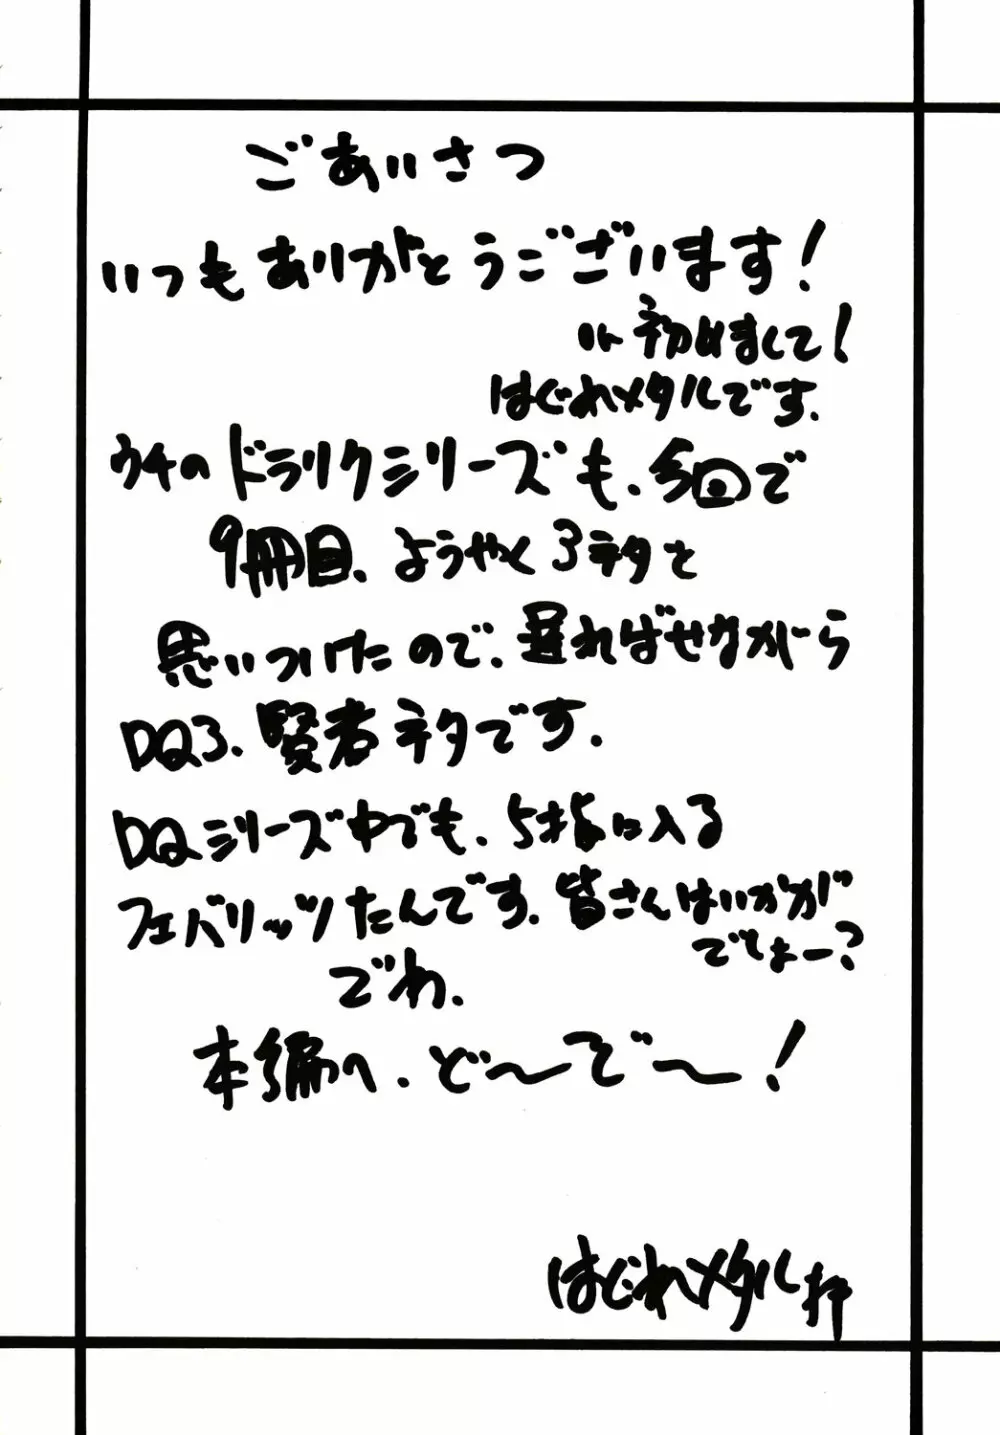 ごあいさつ
いつもありがとうございます!
初めまして!
はぐれメタルです.
ウチのドラクリシリーズも、今回で
9冊目、ようやく3ネタを
思いついたので、遅ればせながら
DQ3、賢者ネタです.
DQシリーズ中でも、5指に入る
フェバリッツたんです.皆さんはいかが
でしょー?
でわ、
本編へ、ど〜ぞ〜!
はぐれメタル拝